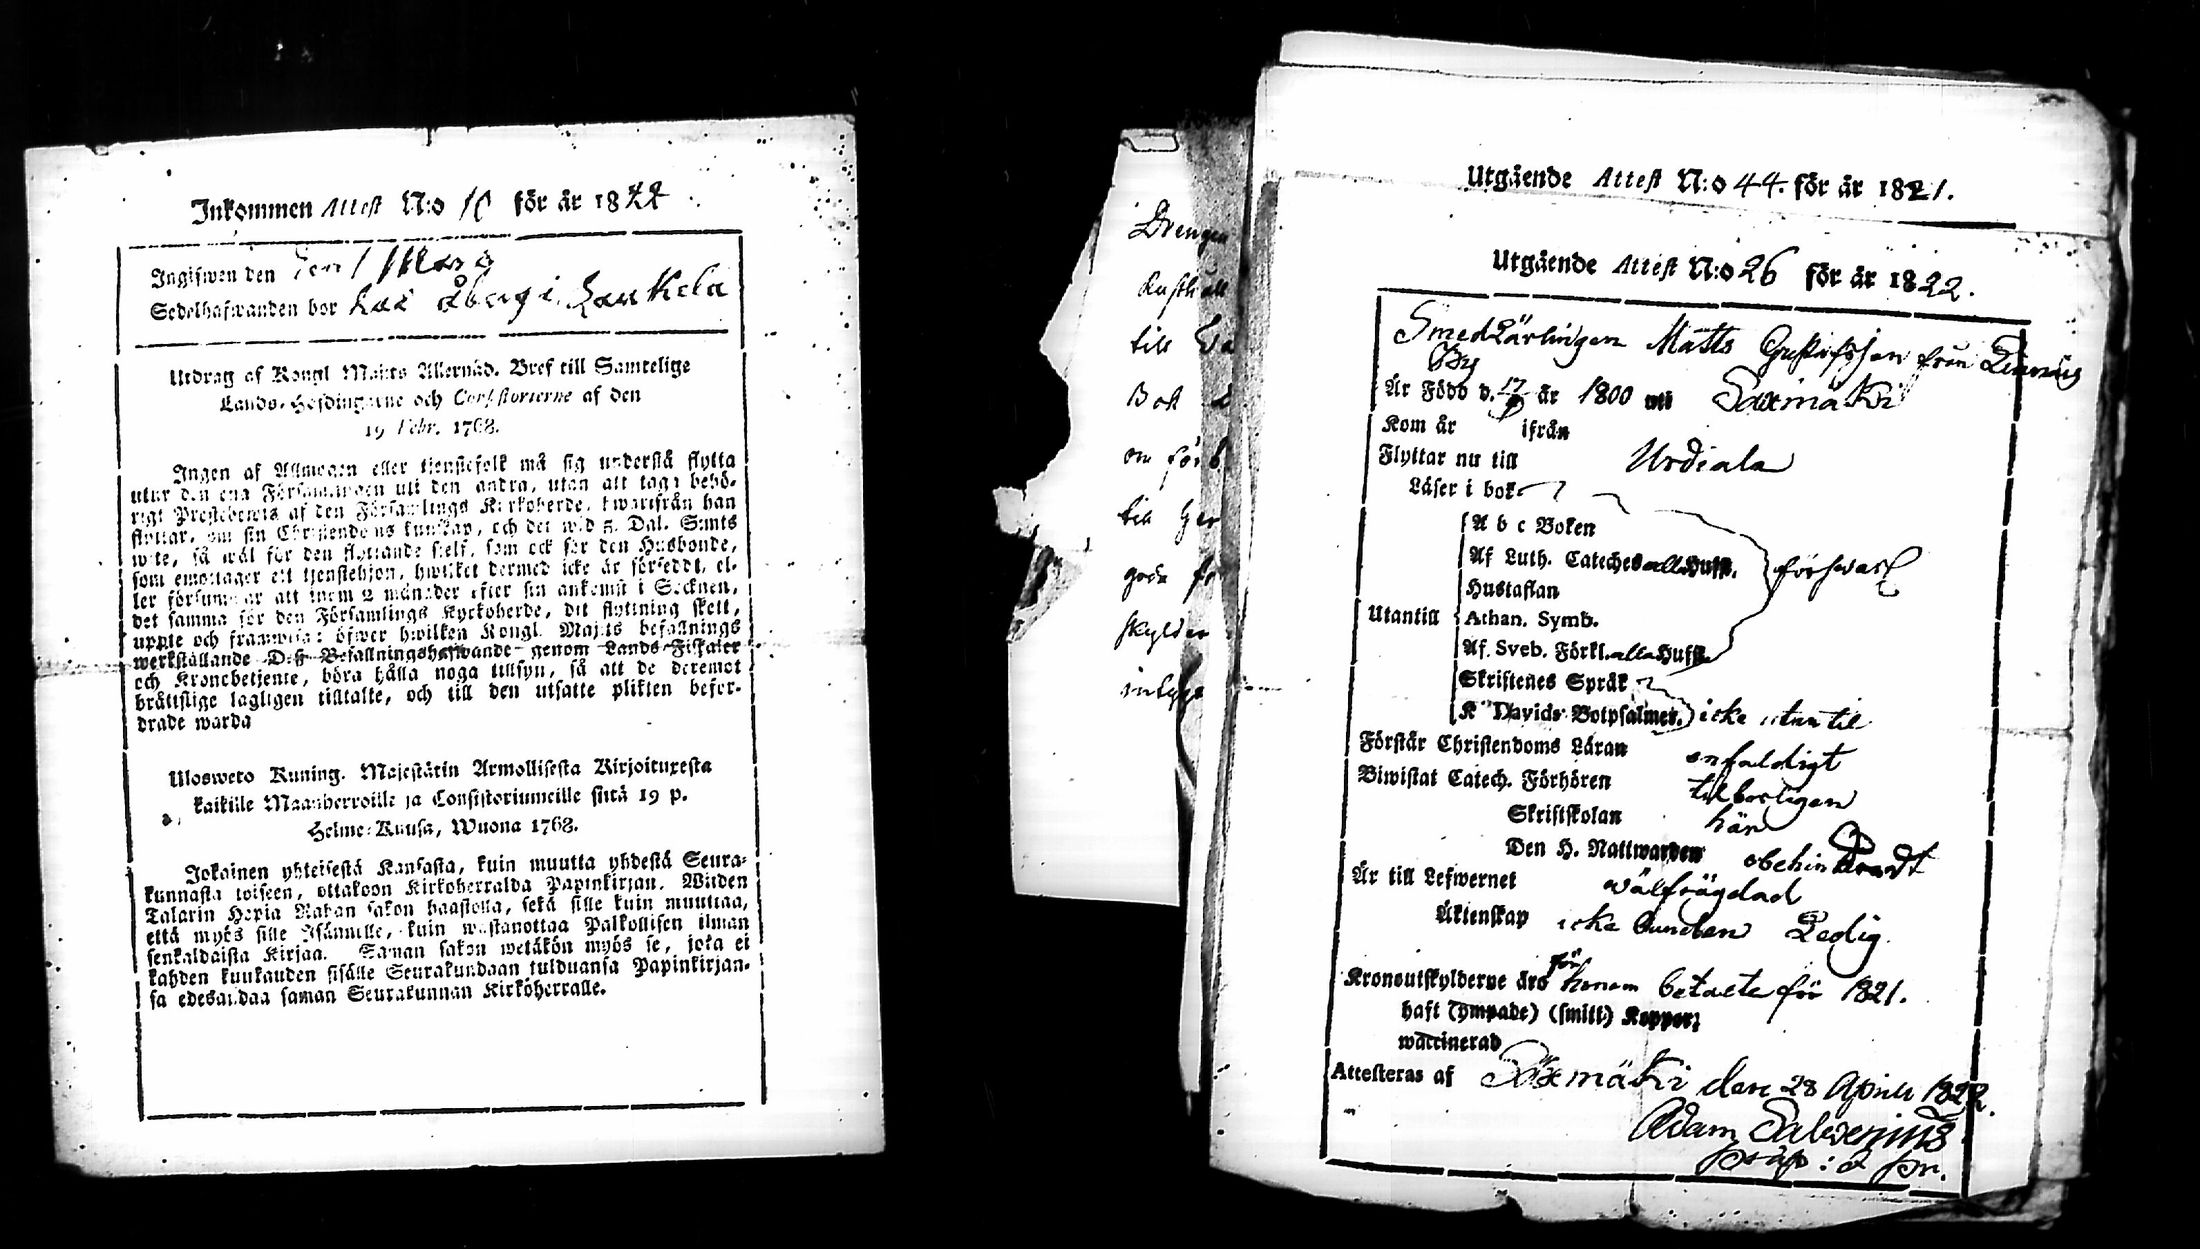 Inkommen Attest N:o 10 för år 1822
Ingifwen den 1 Maij
Sedelhafwanden bor hos Åberg i Laukela
Utdrag af Kongl Maj:ts Allernåd. Bref till Samtelige
Lands-Höfdingarne och Consistorierne af den
19 Febr. 1768.
Ingen af Allmogen eller tjenstefolk må sig understå flytta
utur den ena Församlingen uti den andra, utan att taga behö-
rigt Prestebewis af den Församlings Kyrkoherde, hwarifrån han
flyttar, om sin Christendoms kunskap, och det wid 5. Dal. S:mts
wite, så wäl för den flyttande sjelf, som ock för den Husbonde,
som emottager ett tjenstehjon, hwilket dermed icke är försedt, el-
ler försummar att inom 2 månader efter sin ankomst i Socknen,
det samma för den Församlings Kyrkoherde, dit flyttning skett,
uppte och framwisa: öfwer hwilken Kongl. Maj:ts befallnings
werkställande Deß Befallningshafwande genom Lands-Fiskaler
och Kronobetjente, böra hålla noga tillsyn, så att de deremot
bråttslige lagligen tilltalte, och till den utsatte plikten befor-
drade warda
Ulosweto Kuning. Majestätin Armollisesta Kirjoituxesta
kaikille Maanherroille ja Consistoriumeille siitä 19 p.
Helme-Kuusa, Wuona 1768.
Jokainen yhteisestä Kansasta, kuin muutta yhdestä Seura-
kunnasta toiseen, ottakoon Kirkoherralda Papinkirjan. Wiiden
Talarin Hopia Rahan sakon haastolla, sekä sille kuin muuttaa,
että myös sille Isännälle, kuin wastanottaa Palkollisen ilman
senkaldaista Kirjaa. Saman sakon wetäkön myös se, joka ei
kahden kuukauden sisälle Seurakundaan tulduansa Papinkirjan-
sa edesandaa saman Seurakunnan Kirkoherralle.
Drengen
till
om förb
till
skylder
Utgående Attest N:o 44. för år 1821.
Utgående Attest N:o 26 för år 1822.
Smedlärlingen Matts Gustafsson från
By
År Född d. 17 år 1800 uti Saxmäki
Kom år ifrån
Flyttar nu till Urdiala
Läser i bok
A b c Boken
Af Luth. Cateches alla Hufst. försvarl
Hustaflan
Utantill Athan. Symb.
Af Sveb. Förkl. alla Hufst.
Skriftenes Språk
K Davids Botpsalmer. icke utantil
Förstår Christendoms Läran enfaldigt
Biwistat Catech. Förhören tilbörligen
Skriftskolan här
Den H. Nattwarden obehindradt
Är till Lefwernet wälfrägdad
Äktenskap icke bunden Ledig.
Kronoutskylderne äro för honom betalte för 1821.
haft (ympade) (smitt) Koppor,
waccinerad
Attesteras af Sääxmäki den 28 Aprill 1822.
Adam Salvenius
præp: & pr.